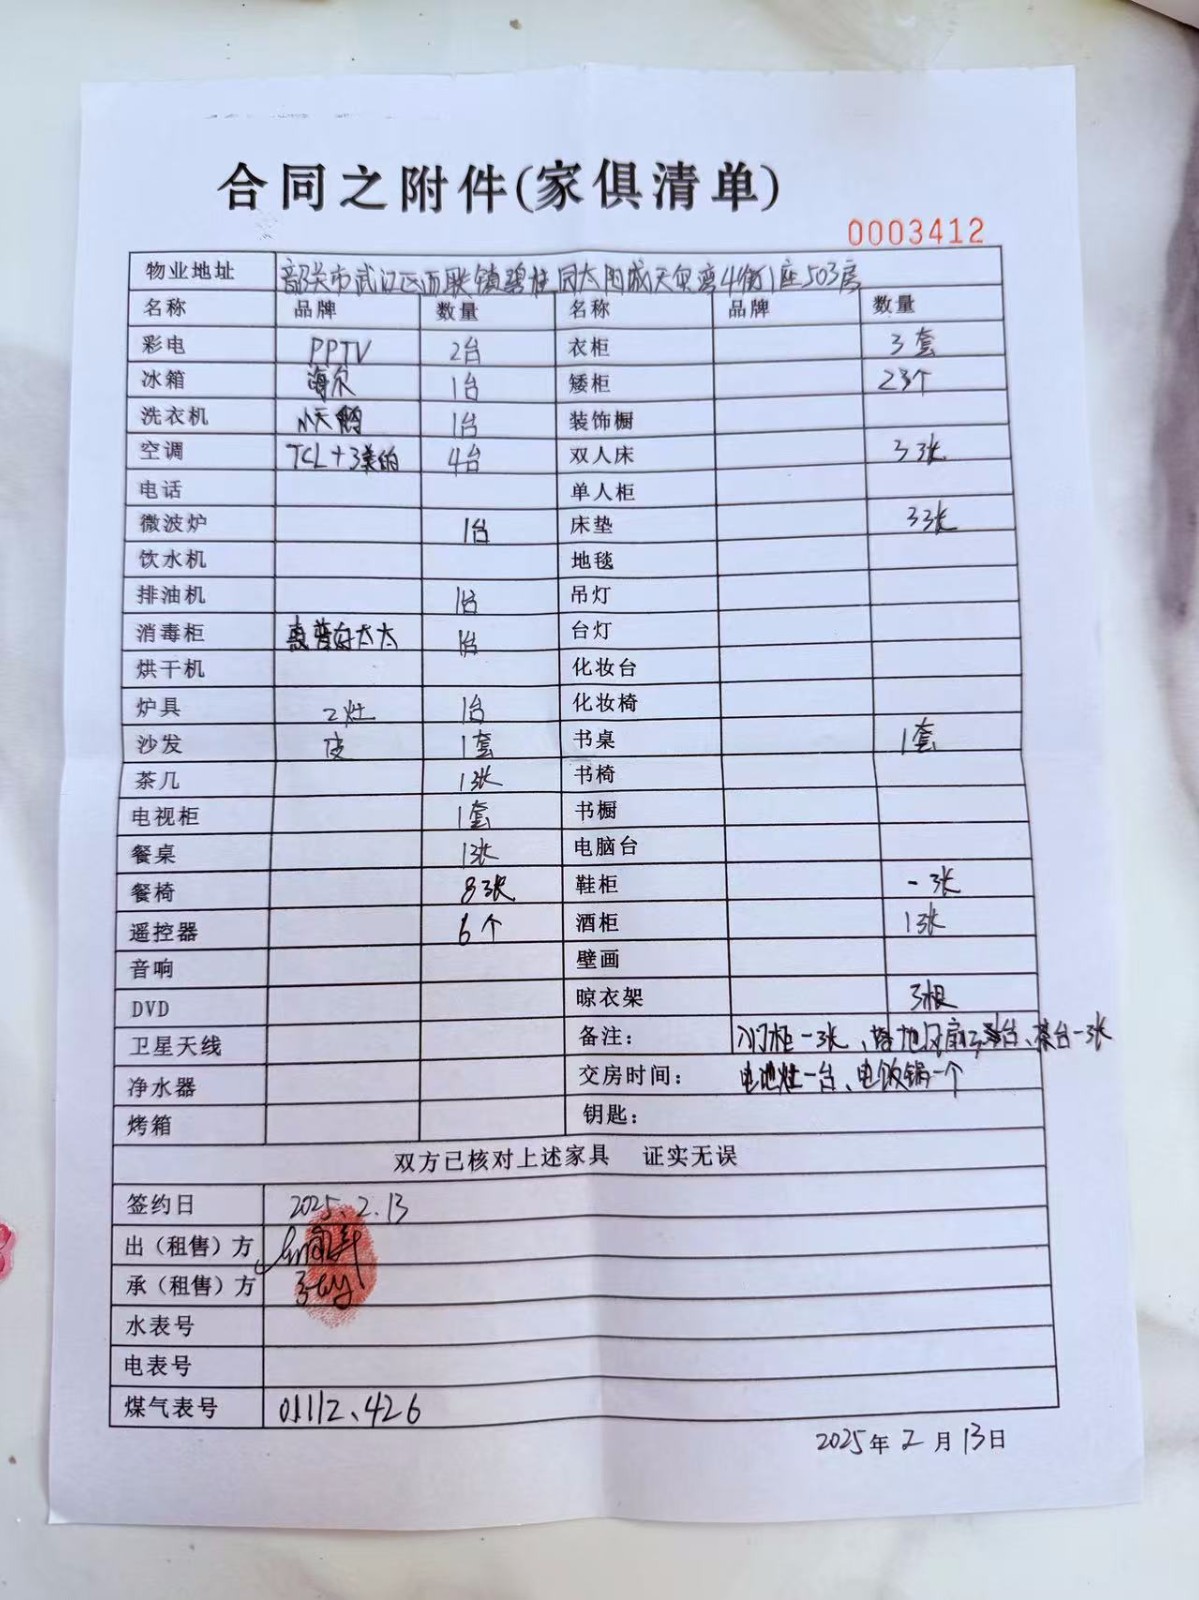 合同之附件(家俱清单)
0003412
物业地址 韶关市武江区西联镇碧桂园太阳城天泉湾4街1座503房
名称 品牌 数量 名称 品牌 数量
彩电 PPTV 2台 衣柜 3套
冰箱 海尔 1台 矮柜 23个
洗衣机 小天鹅 1台 装饰橱
空调 TCL+3美的 4台 双人床 3张
电话 单人柜
微波炉 1台 床垫 3张
饮水机 地毯
排油机 1台 吊灯
消毒柜 好太太 1台 台灯
烘干机 化妆台
炉具 2灶 1台 化妆椅
沙发 皮 1套 书桌 1套
茶几 1张 书椅
电视柜 1套 书橱
餐桌 1张 电脑台
餐椅 8张 鞋柜 一张
遥控器 6个 酒柜 1张
音响 壁画
DVD 晾衣架 3根
卫星天线 备注: 入门柜一张、落地风扇 台、茶台一张
净水器 交房时间: 电池灶一台、电饭锅一个
烤箱 钥匙:
双方已核对上述家具 证实无误
签约日 2025.2.13
出(租售)方
承(租售)方
水表号
电表号
煤气表号 01112.426
2025年2月13日